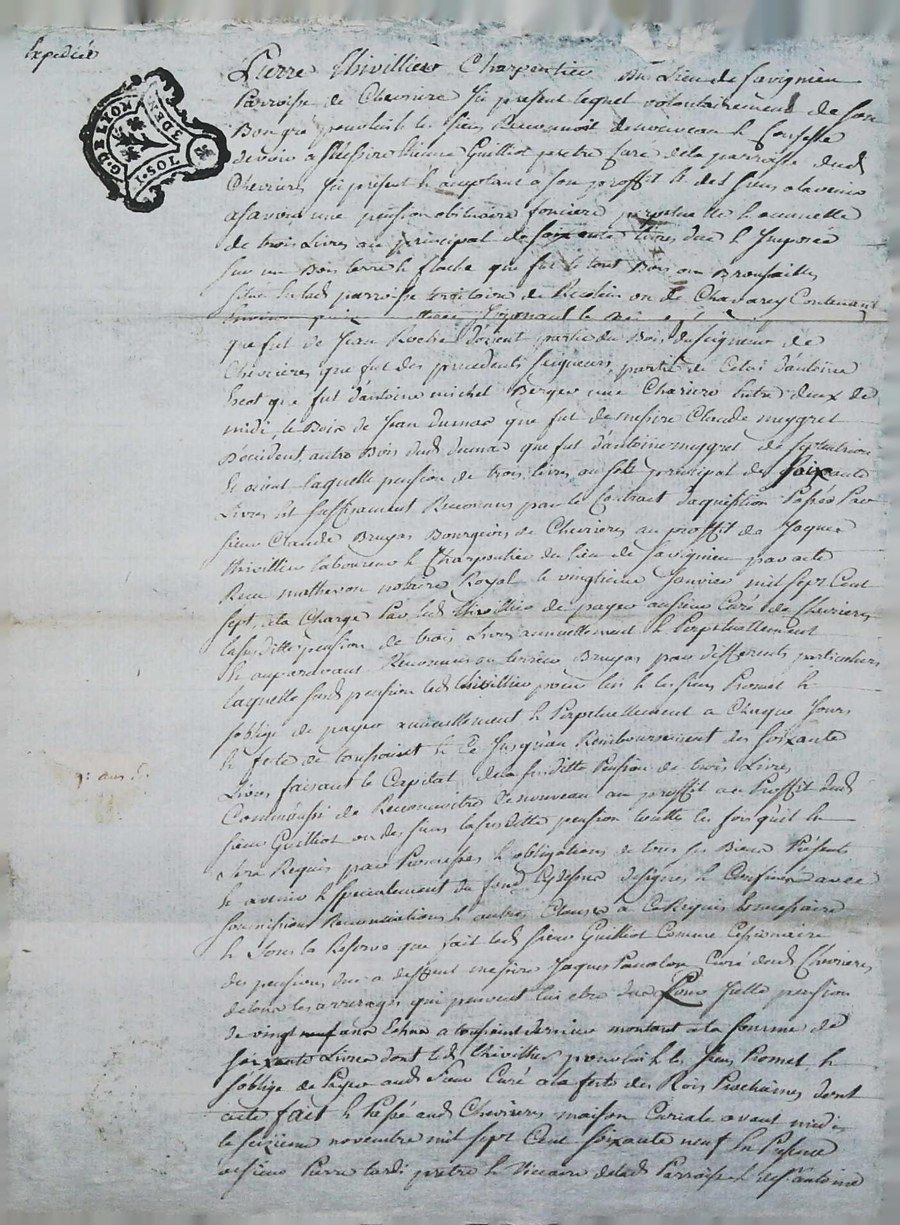 Expediée
G. DE LYON
1. SOL 3 DEN
Pierre Thivillier Charpentier du Lieu de Savignieu
Parroisse de Chevriere Icy present lequel volontairement de son
Bon gre pour luy & les siens Reconnoit de nouveau & Confesse
devoir a Messire Etienne Guilliot pretre Curé dela parroisse dud
Chevrieres Icy present & acceptant a son proffit & des siens alavenir
asavoir une pension obituaire fonciere perpetuelle & annuelle
de trois Livres au principal de soixante livres due & Imposée
sur un Bois terre & flache que fut le tout Bois ou Brousailles
situé en lad parroisse territoire de ou de Chavarey Contenant
environ quinze
que fut de Jean Roche dorient partie du Bois du seigneur de
Chevrieres que fut des precedents seigneurs, partie de Celui d'antoine
que fut d'antoine michel Berger une Chariere Entre deux de
midi, le Bois de Jean dumas que fut de messire Claude meygret
Doccident, autre Bois dud dumas que fut d'antoine meygret de septentrion
& orient laquelle pension de trois livres au sold principal de soixante
Livres est suffisament Reconnue par le Contract daquisition Passée Par
sieur Claude Bruyas Bourgeois de Chevrieres au proffit de Jaques
thivillier laboureur & Charpentier du lieu de Savignieu par acte
Receu matheron notaire Royal le vingtieme Janvier mil sept Cent
sept, ala Charge Par led thivillier de payer ausieur Curé de Chevrieres
lasusditte pension de trois Livres annuellement & Perpetuellement
& auparavant Reconnue au terrier Bruyas par differents particuliers
laquelle susd pension led thivillier pour luy & les siens Promet &
soblige de payer annuellement & Perpetuellement a Chaque Jours
& feste de toussaint & Ce Jusqu'au Remboursement des soixante
Livres faisant le Capital dela susditte Pension de trois Livres,
Comm'aussi de Reconnoitre de nouveau au proffit au Proffit dud
sieur Guilliot ou des siens lasusditte pension toutte les fois qu'il en
sera Requis par Promesses & obligations de tous ses Biens Présents
& avenir & spécialement du fond Cydessus designés & Confiné avec
soumissions Renonciations & autres Clauses a Ce Requis & necessaire
& sous la Reserve que fait led sieur Guilliot Comme Cessionaire
des pensions due a deffunt messire Jaques Curé dud Chevrieres
detous les arrerages qui peuvent luy etre due Pour Jcelle pension
de vingt neuf ans Echue a toussaint dernier montant ala somme de
soixante Livres dont led thivillier pour luy & les siens Promet &
soblige de Payer aud sieur Curé ala feste des Rois Prochaines dont
acte fait & Passé aud Chevrieres maison Curiale avant midi
le seizieme novembre mil sept Cent soixante neuf En Presence
desieur Pierre tardi pretre & Vicaire delad Parroisse & desr antoine